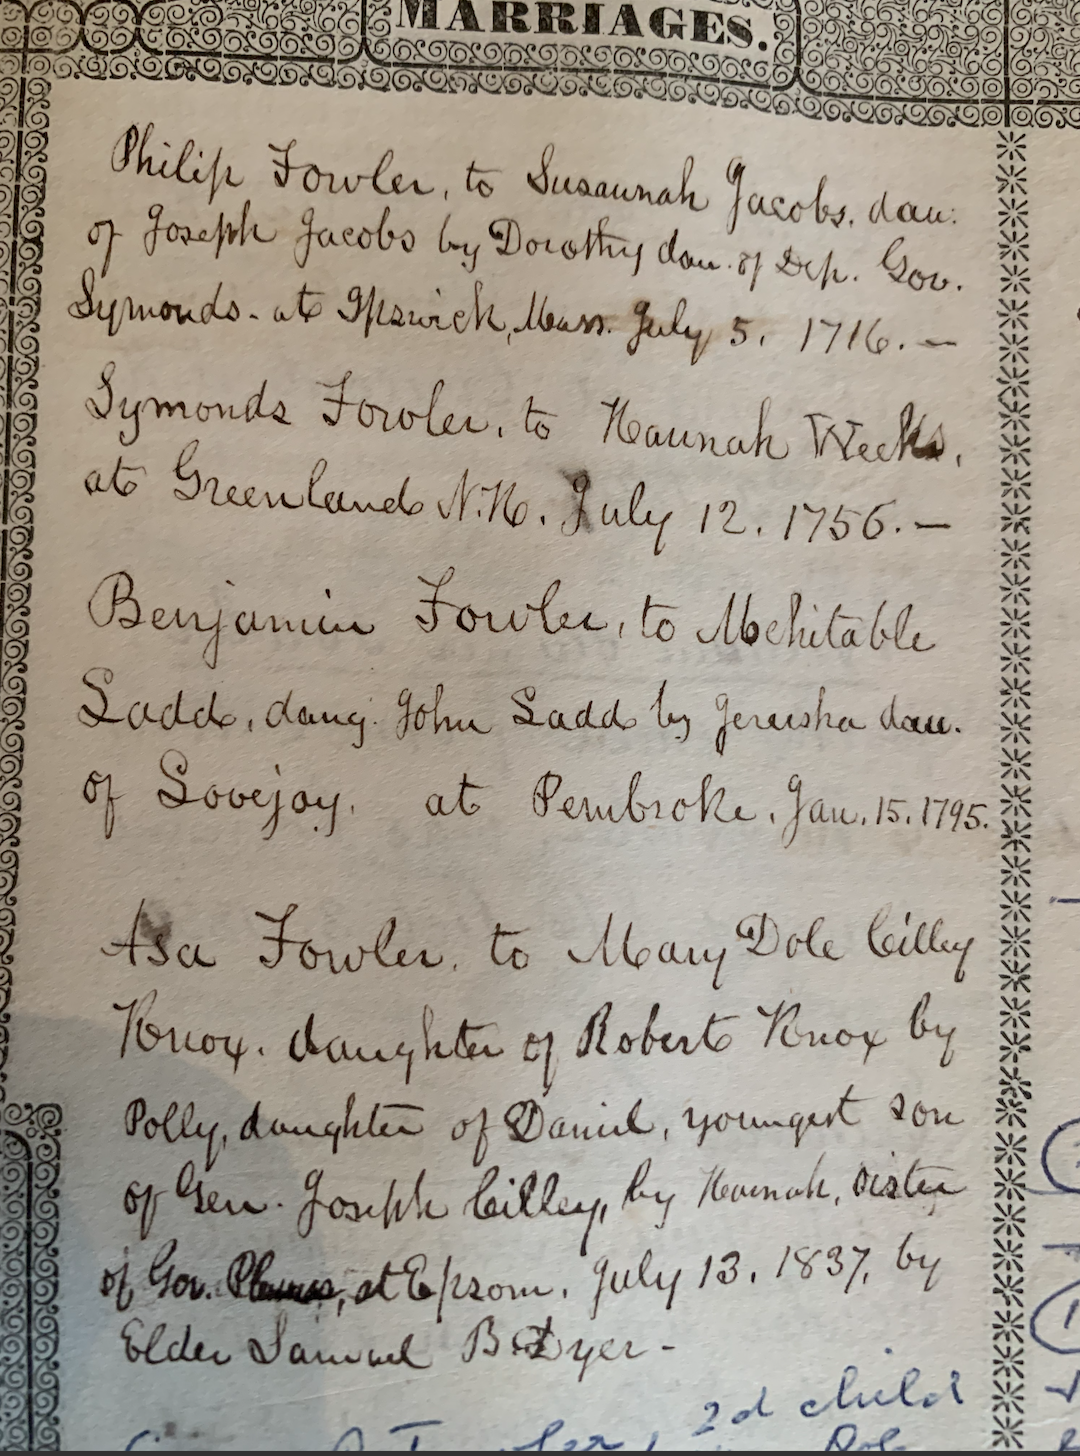 MARRIAGES.
Philip Fowler, to Susannah Jacobs, dau:
of Joseph Jacobs by Dorothy dau. of Dep. Gov.
Symonds - at Ipswich, Mass. July 5. 1716. —
Symonds Fowler, to Hannah Weeks,
at Greenland N.H. July 12. 1756. —
Benjamin Fowler, to Mehitable
Ladd, daug. John Ladd by Jerusha dau.
of Lovejoy. at Pembroke. Jan. 15. 1795.
Asa Fowler, to Mary Dole Cilley
Knox. daughter of Robert Knox by
Polly, daughter of Daniel, youngest son
of Gen. Joseph Cilley, by Hannah, sister
of Gov. Plumer, at Epsom. July 13. 1837, by
Elder Samuel B. Dyer -
2d child